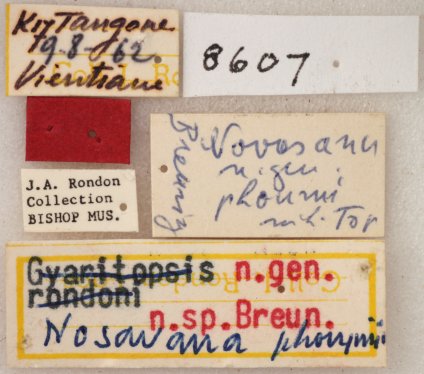 Kiy Tangone
19-8-62.
Vientiane
8607
J.A. Rondon
Collection
BISHOP MUS.
Breuning
n. gen.
phoumi
mih. Typ
Gyaritopsis n.gen.
rondoni
n.sp.Breun.
Nosavana phoumii